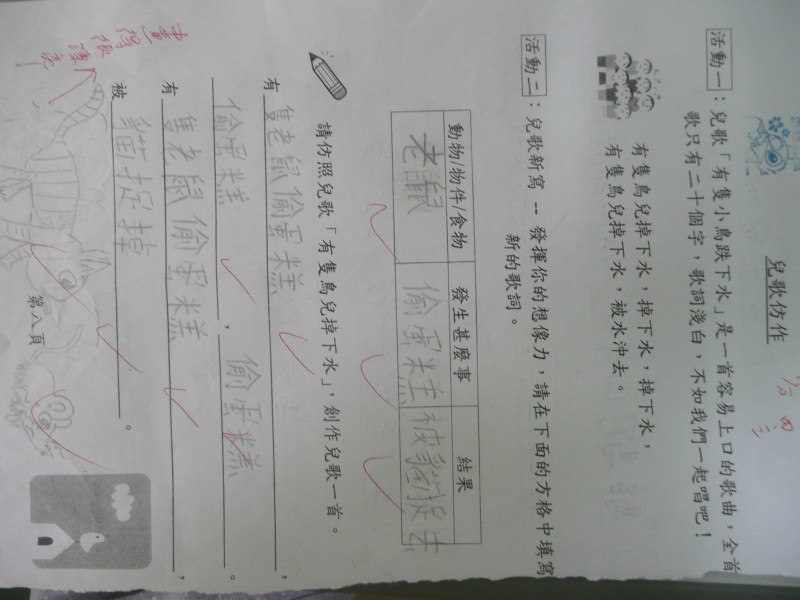 兒歌仿作
活動一：兒歌「有隻小鳥跌下水」是一首容易上口的歌曲，全首
歌只有二十個字，歌詞淺白，不如我們一起唱吧！
有隻鳥兒掉下水，掉下水，掉下水，
有隻鳥兒掉下水，被水沖去。
活動二：兒歌新寫 -- 發揮你的想像力，請在下面的方格中填寫
新的歌詞。
動物/物件食物 發生甚麼事 結果
老鼠 偷蛋糕 被貓捉去
請仿照兒歌「有隻鳥兒掉下水」，創作兒歌一首。
有隻老鼠偷蛋糕，
偷蛋糕，偷蛋糕。
有隻老鼠偷蛋糕，
被貓捉掉。
畫得很漂亮！
第八頁